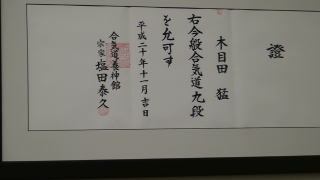 證
木目田 猛
右今般合気道九段
を允可す
平成二十年十一月吉日
合気道養神館
宗家 塩田泰久